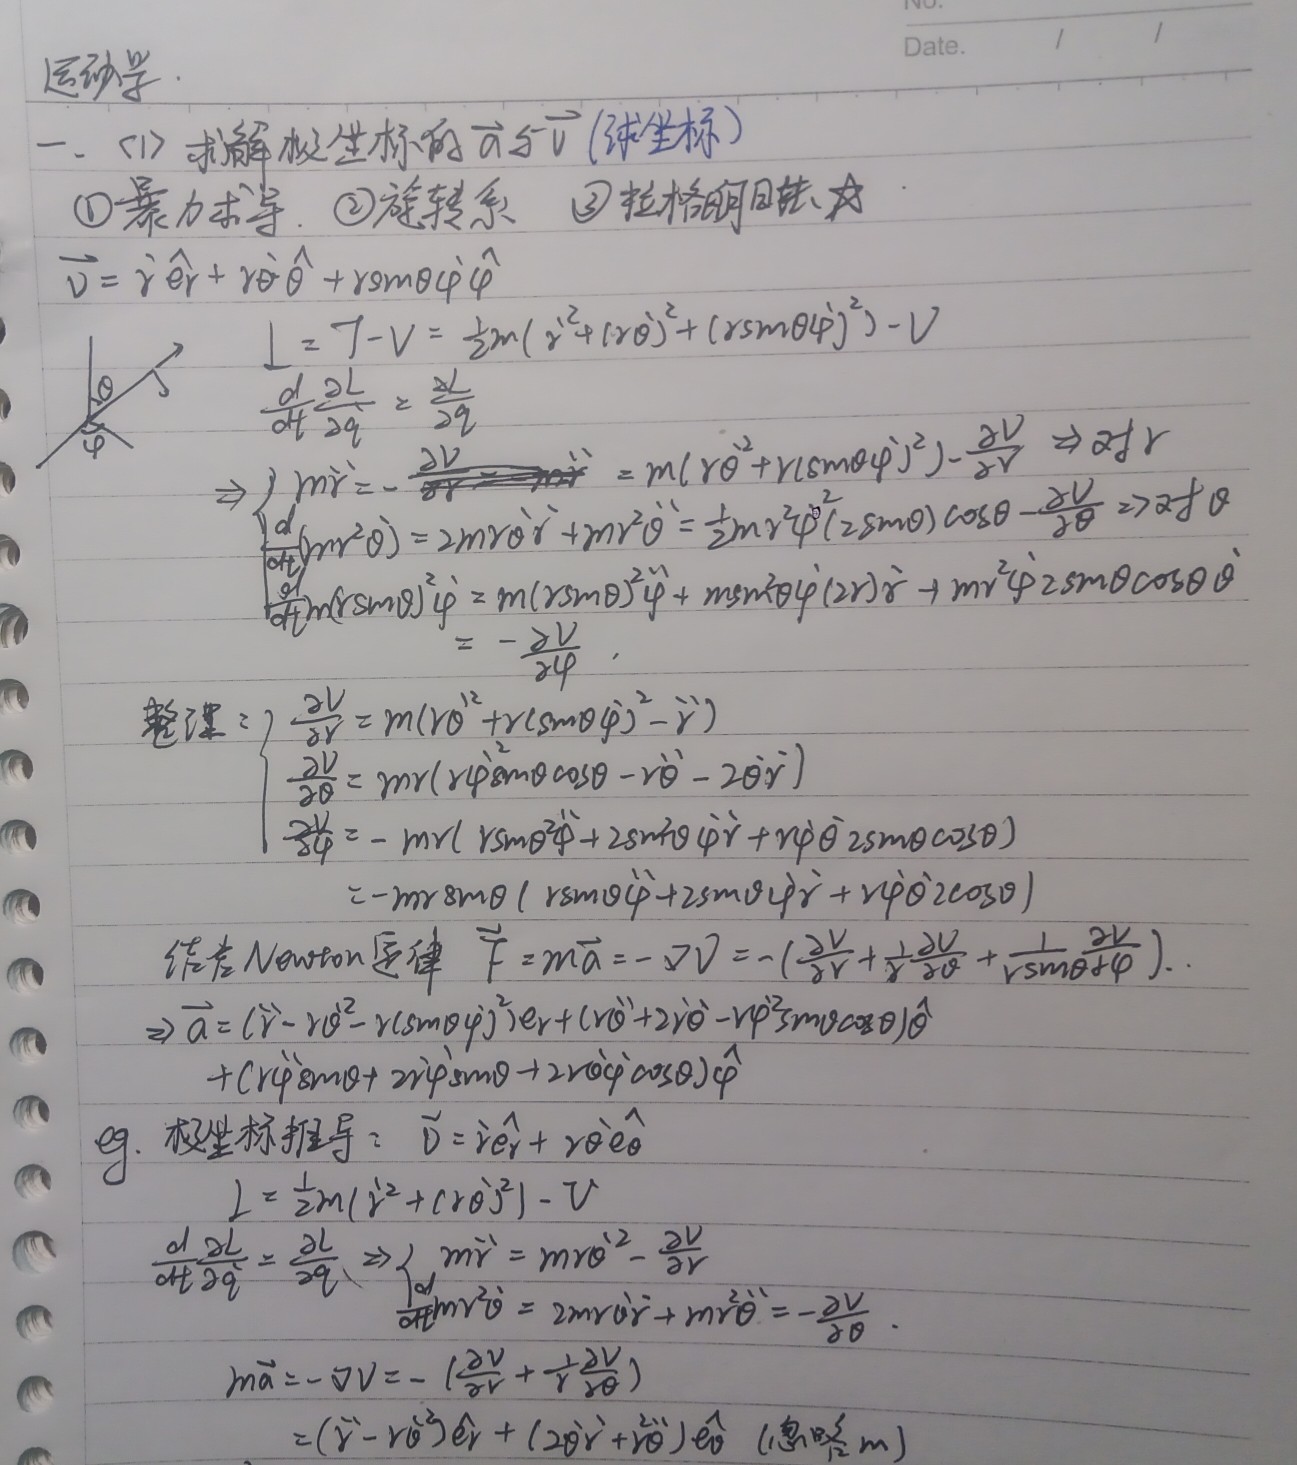 No.
Date. / /
运动学.
一. (1) 求解极坐标的 a⃗ 与 v⃗ (球坐标)
①暴力求导. ②旋转系 ③拉格朗日法、☆
v⃗ = ṙ ê_r + rθ̇ θ̂ + rsinθφ̇ φ̂
L = T-V = ½m(ṙ² + (rθ̇)² + (rsinθφ̇)²) - V
d/dt ∂L/∂q̇ = ∂L/∂q
θ
φ
⇒ { mr̈ = - = m(rθ̇² + r(sinθφ̇)²) - ∂V/∂r ⇒ 对r
d/dt(mr²θ̇) = 2mrθ̇ṙ + mr²θ̈ = ½mr²φ̇²(2sinθ)cosθ - ∂V/∂θ ⇒ 对θ
d/dt m(rsinθ)²φ̇ = m(rsinθ)²φ̈ + msin²θφ̇(2r)ṙ + mr²φ̇2sinθcosθθ̇
= - ∂V/∂φ .
整理: { ∂V/∂r = m(rθ̇² + r(sinθφ̇)² - r̈)
∂V/∂θ = mr(rφ̇²sinθcosθ - rθ̈ - 2θ̇ṙ)
∂V/∂φ = -mr(rsinθ²φ̈ + 2sin²θφ̇ṙ + rφ̇θ̇2sinθcosθ)
= -mrsinθ(rsinθφ̈ + 2sinθφ̇ṙ + rφ̇θ̇2cosθ)
结合Newton定律 F⃗ = ma⃗ = -∇V = -(∂V/∂r + 1/r ∂V/∂θ + 1/rsinθ ∂V/∂φ)...
⇒ a⃗ = (r̈ - rθ̇² - r(sinθφ̇)²)e_r + (rθ̈ + 2ṙθ̇ - rφ̇²sinθcosθ)θ̂
+ (rφ̈sinθ + 2ṙφ̇sinθ + 2rθ̇φ̇cosθ)φ̂
eg. 极坐标推导: v⃗ = ṙê_r + rθ̇ê_θ
L = ½m(ṙ² + (rθ̇)²) - V
d/dt ∂L/∂q̇ = ∂L/∂q、⇒ { mr̈ = mrθ̇² - ∂V/∂r
d/dt mr²θ̇ = 2mrθ̇ṙ + mr²θ̈ = - ∂V/∂θ .
ma⃗ = -∇V = - (∂V/∂r + 1/r ∂V/∂θ)
= (r̈ - rθ̇²)ê_r + (2θ̇ṙ + r²θ̈)ê_θ (忽略 m)